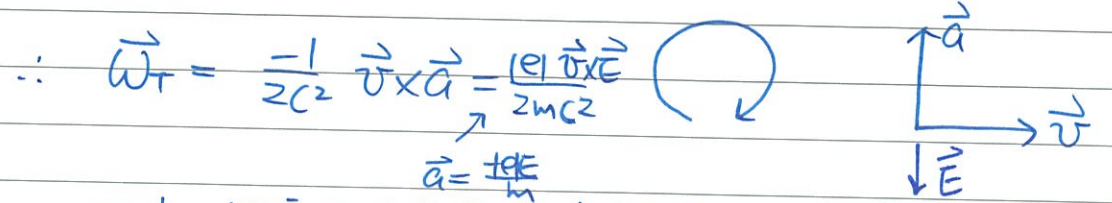 ∴ ω⃗_T = -1/2C² v⃗×a⃗ = |e|v⃗×E⃗/2mC² a⃗
v⃗
a⃗ = -|e|E/m E⃗